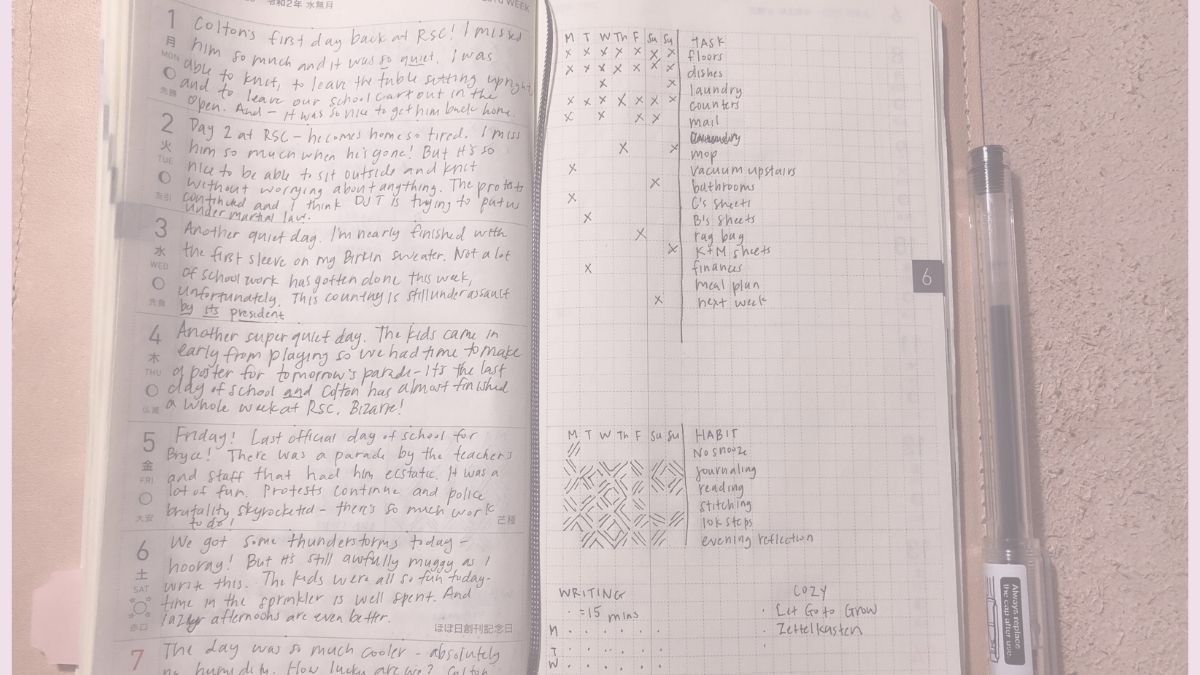 令和2年 水無月
WEEK
1
月
MON
先勝
Colton's first day back at RSC! I missed
him so much and it was so quiet. I was
able to knit, to leave the table sitting upright,
and to leave our school cart out in the
open. And - it was so nice to get him back home.
2
火
TUE
友引
Day 2 at RSC - he comes home so tired. I miss
him so much when he's gone! But it's so
nice to be able to sit outside and knit
without worrying about anything. The protests
continued and I think DJT is trying to put us
under martial law.
3
水
WED
先負
Another quiet day. I'm nearly finished with
the first sleeve on my Birkin sweater. Not a lot
of school work has gotten done this week,
unfortunately. This country is still under assault
by its president
4
木
THU
仏滅
Another super quiet day. The kids came in
early from playing so we had time to make
a poster for tomorrow's parade - it's the last
day of school and Colton has almost finished
a whole week at RSC. Bizarre!
5
金
FRI
大安
Friday! Last official day of school for
Bryce! There was a parade by the teachers
and staff that had him ecstatic. It was a
lot of fun. Protests continue and police
brutality skyrocketed - there's so much work
to do!
芒種
6
土
SAT
赤口
We got some thunderstorms today -
hooray! But it's still awfully muggy as I
write this. The kids were all so fun today -
time in the sprinkler is well spent. And
lazy afternoons are even better.
ほぼ日創刊記念日
7
The day was so much cooler - absolutely
no humidity. How lucky are we? Colton
M T W Th F Sa Su TASK
x x x x x x x floors
x x x x x x x dishes
x x laundry
x x x x x x x counters
x x x x mail
x x mop
x vacuum upstairs
x bathrooms
x C's sheets
x B's sheets
x rag bag
x K+M sheets
x finances
meal plan
x next week
6
M T W Th F Sa Su HABIT
No snooze
journaling
reading
stitching
10k steps
evening reflection
WRITING
· = 15 mins
M · · · · ·
T · · · · ·
W · · · · ·
COZY
· Let Go to Grow
· Zettelkasten
·
Always replace
the cap after use.